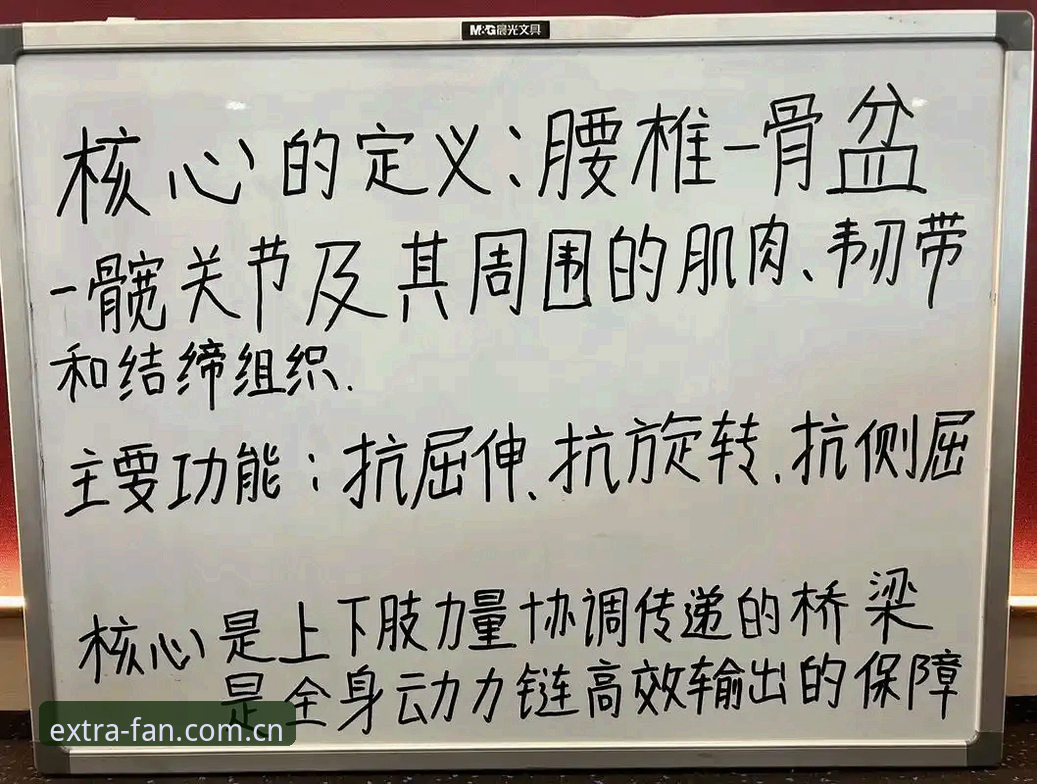 M&G晨光文具
核心的定义：腰椎－骨盆
－髋关节及其周围的肌肉、韧带
和结缔组织.
主要功能：抗屈伸、抗旋转、抗侧屈
核心是上下肢力量协调传递的桥梁
是全身动力链高效输出的保障
extra-fan.com.cn